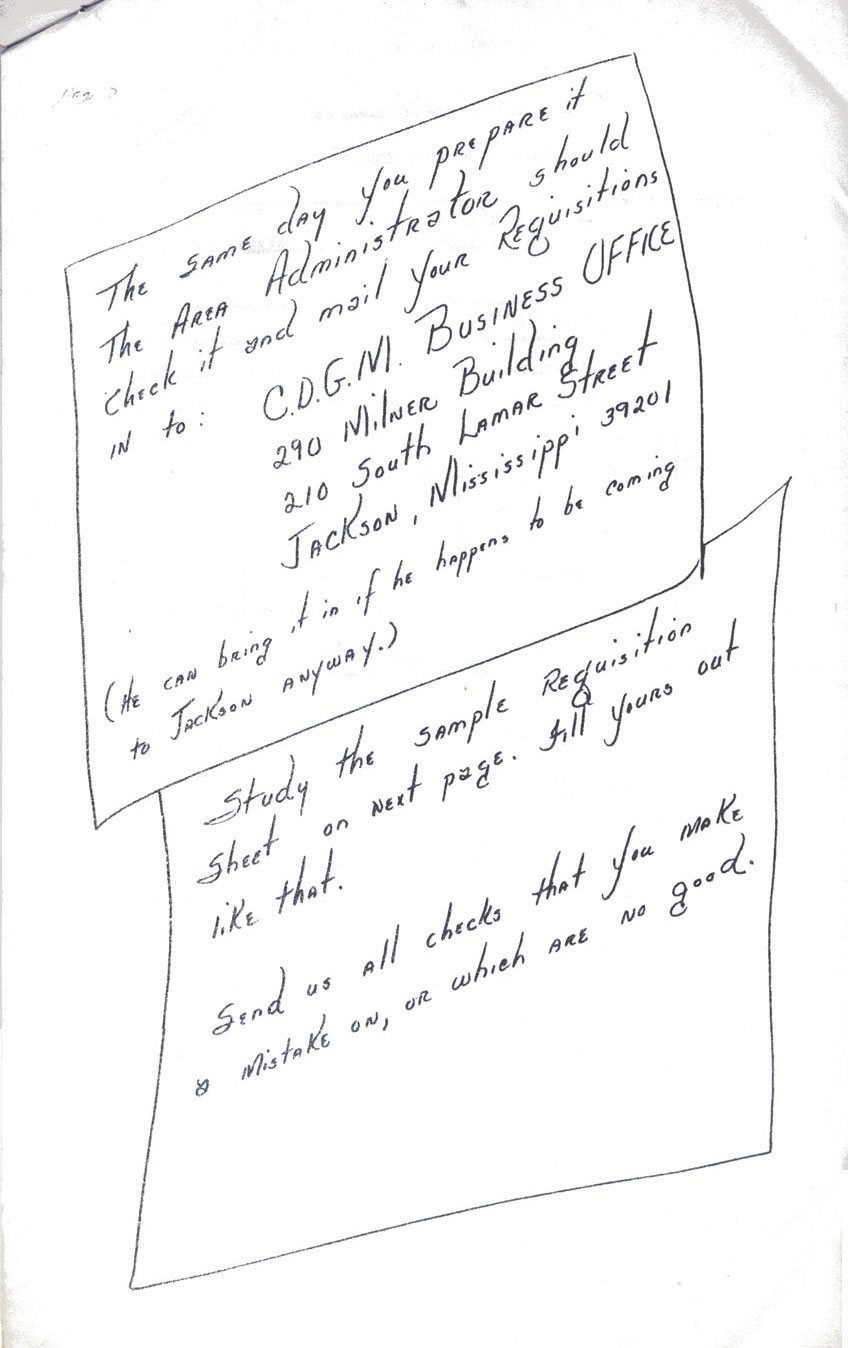 The same day you prepare it
The Area Administrator should
check it and mail your Requisitions
in to:
C.D.G.M. Business OFFICE
290 Milner Building
210 South Lamar Street
Jackson, Mississippi 39201
(He can bring it in if he happens to be coming
to Jackson anyway.)
Study the sample Requisition
sheet on next page. Fill yours out
like that.
Send us all checks that you make
a mistake on, or which are no good.